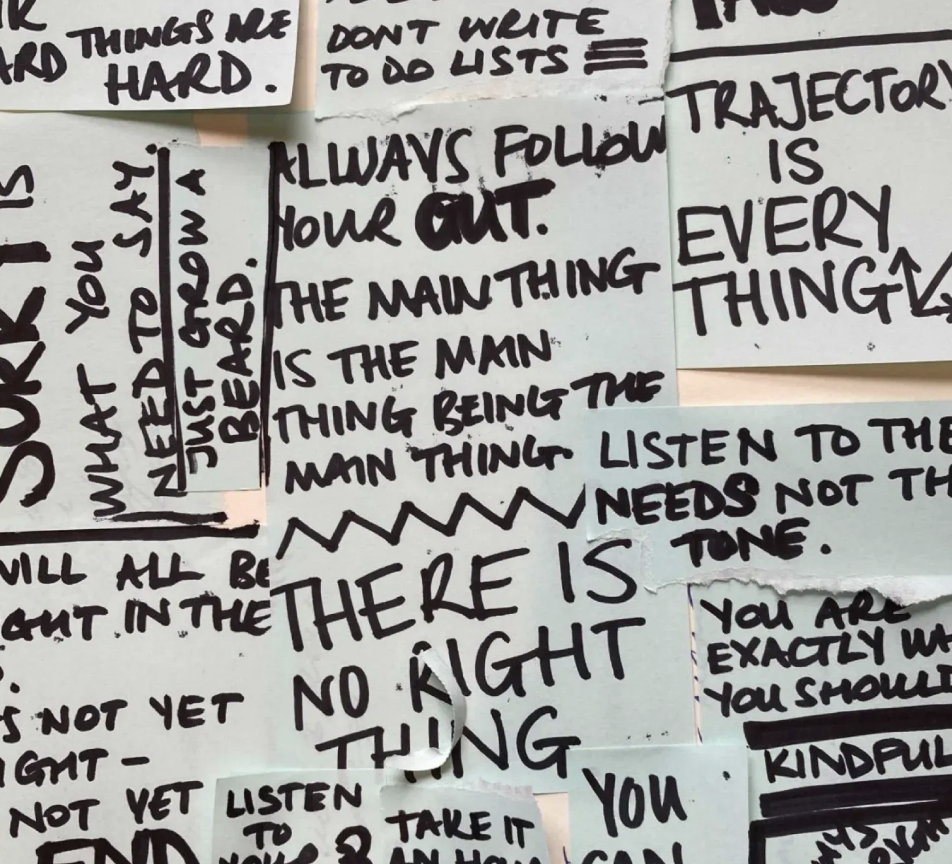 THINGS ARE
HARD.
DONT WRITE
TO DO LISTS
TRAJECTORY
IS
EVERY
THING
ALWAYS FOLLOW
YOUR GUT.
THE MAIN THING
IS THE MAIN
THING BEING THE
MAIN THING.
THERE IS
NO RIGHT
THING
IS
WHAT YOU
NEED TO SAY.
JUST GROW A
BEARD.
LISTEN TO THE
NEEDS NOT
TONE.
WILL ALL BE
IN THE
NOT YET
NOT YET
END
LISTEN
TO
TAKE IT
YOU
CAN
YOU ARE
EXACTLY
YOU
KINDFUL